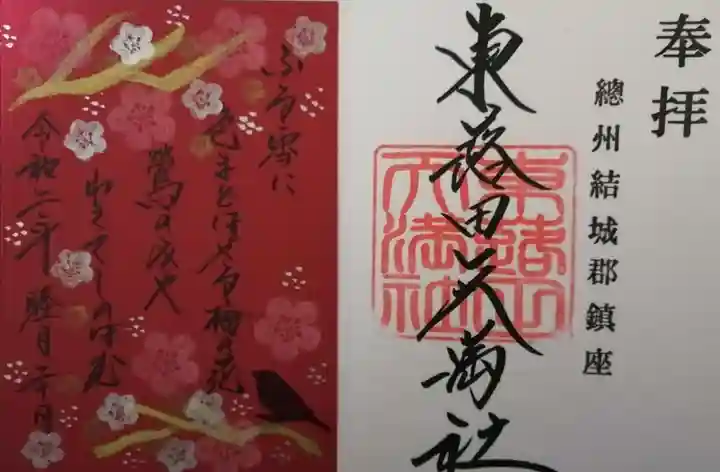 奉拝
總州結城郡鎮座
東蕗田天満社
東蕗田
天満社
ふる雪に
色まとはせる梅の花
鶯のみや
わきてしのはむ
令和二年 睦月二十日